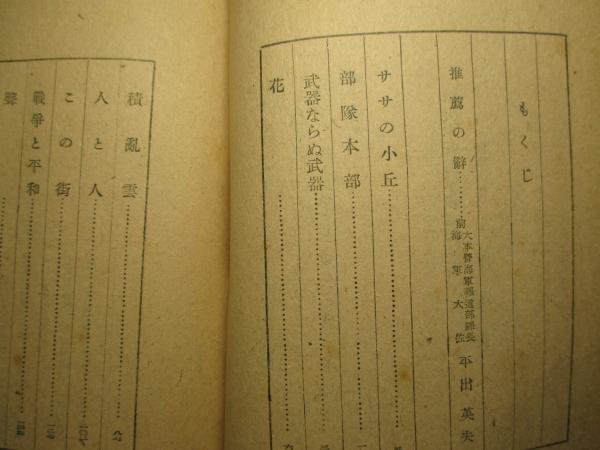 もくじ
推薦の辭………前大本營海軍報道部課長海軍大佐 平出英夫
ササの小丘
部隊本部
武器ならぬ武器
花
積亂雲
人と人
この街
戰爭と平和
聲